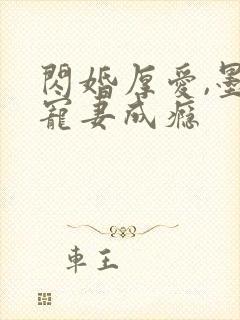 閃婚厚愛,墨
寵妻成癮
車王